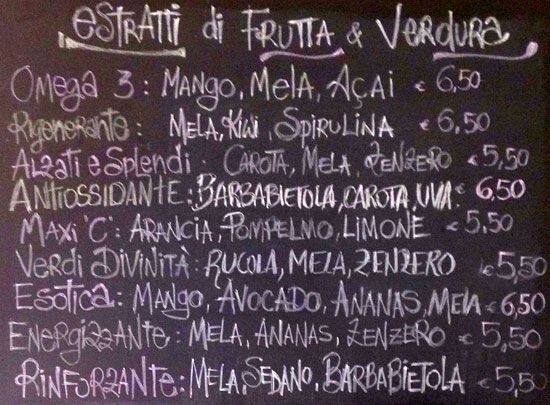 ESTRATTI di FRUTTA & VERDURA
OMEGA 3: MANGO, MELA, AÇAI € 6,50
Rigenerante: MELA, KIWI, SPIRULINA € 6,50
ALZATI e SPLENDI: CAROTA, MELA, ZENZERO € 5,50
ANTIOSSIDANTE: BARBABIETOLA, CAROTA, UVA € 6,50
MAXI 'C': ARANCIA, POMPELMO, LIMONE € 5,50
VERDI DIVINITÀ: RUCOLA, MELA, ZENZERO € 5,50
ESOTICA: MANGO, AVOCADO, ANANAS, MELA € 6,50
ENERGIZZANTE: MELA, ANANAS, ZENZERO € 5,50
RINFORZANTE: MELA, SEDANO, BARBABIETOLA € 5,50